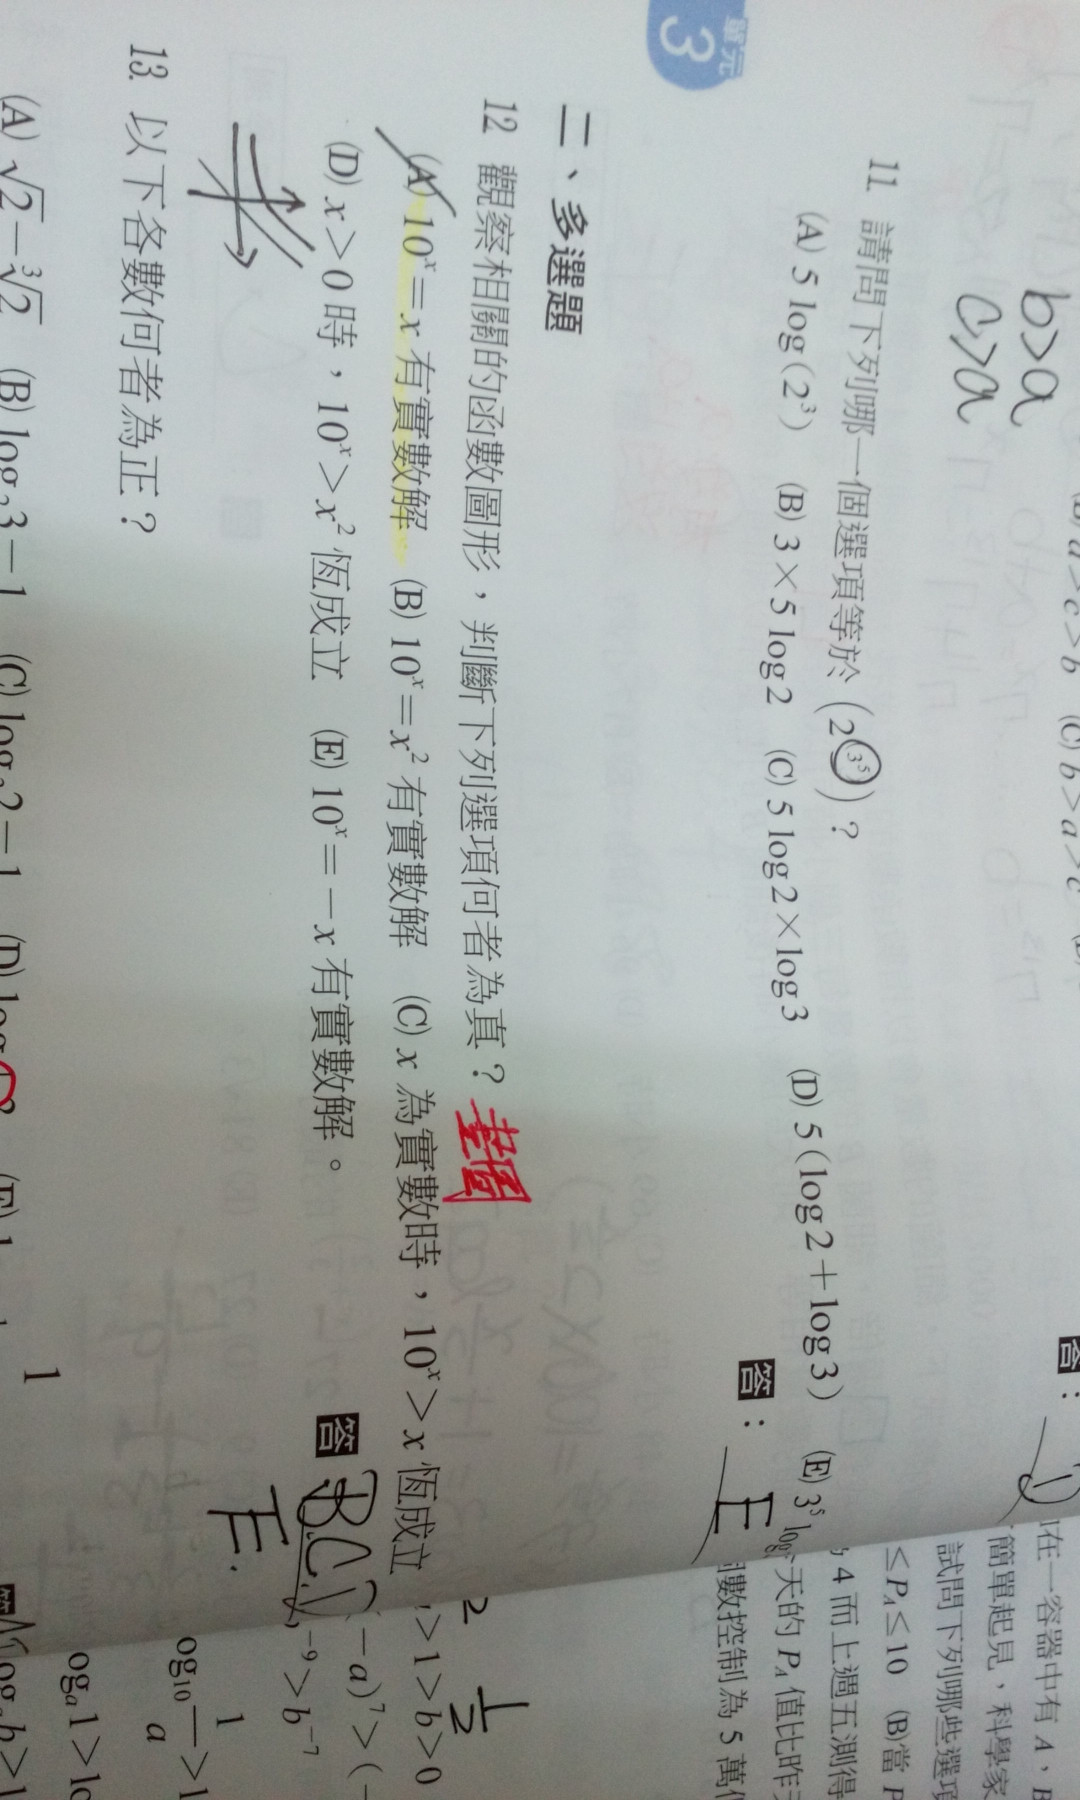 單元
3
b>a
c>a
a>c>b (C) b>a>c
答：
11. 請問下列哪一個選項等於 (2^(3^5))？
(A) 5 log(2³) (B) 3×5 log2 (C) 5 log2×log3 (D) 5(log2+log3) (E) 3⁵ log
答： E
二、多選題
12. 觀察相關的函數圖形，判斷下列選項何者為真？
(A) 10ˣ=x 有實數解 (B) 10ˣ=x² 有實數解 (C) x 為實數時，10ˣ>x 恆成立
(D) x>0 時，10ˣ>x² 恆成立 (E) 10ˣ=－x 有實數解。
答 B.C.D
E.
13. 以下各數何者為正？
(A) √2－∛2 (B) log₂3－1 (C) log₃2－1 (D) log
在一容器中有 A，B
簡單起見，科學家
試問下列哪些選項
≤P_A≤10 (B)當 P
4 而上週五測得
天的 P_A 值比昨天
數控制為 5 萬
1/2
>1>b>0
－a)⁷>(－
⁻⁹>b⁻⁷
og₁₀ 1/a >1
og_a 1>lo